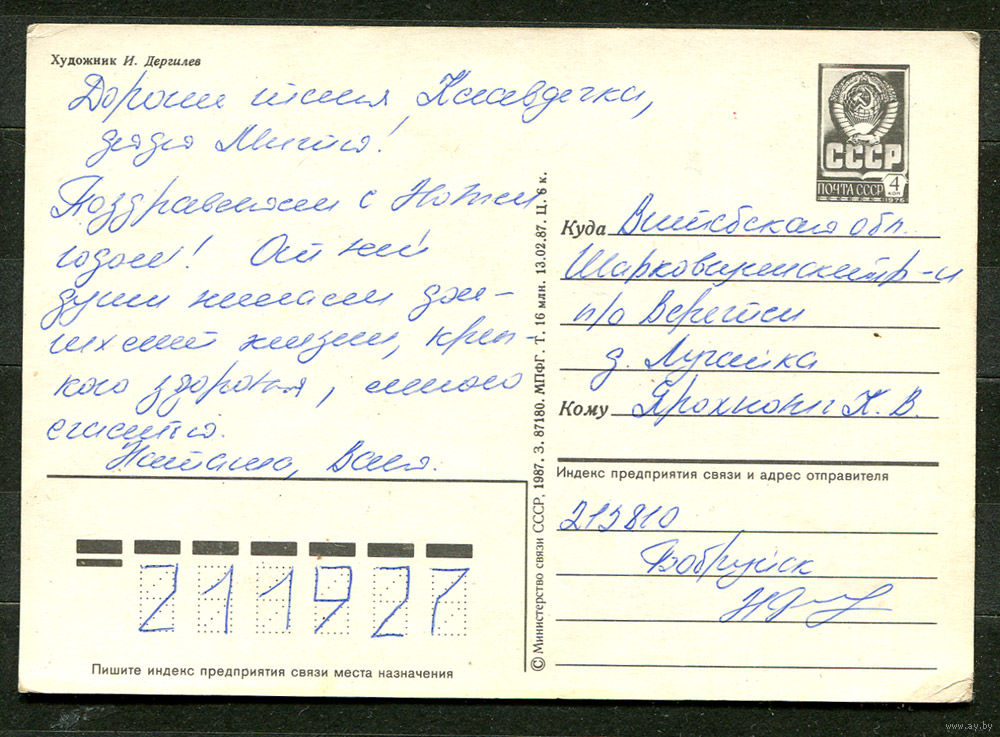 Художник И. Дергилев
Дорогие тётя Клавдечка,
дядя Митя!
Поздравляем с Новым
годом! От всей
души желаем дол-
гих лет жизни, креп-
кого здоровья, много
счастья.
Наташа, Валя.
Пишите индекс предприятия связи места назначения
211927
© Министерство связи СССР, 1987. З. 87180. МПФГ. Т. 16 млн. 13.02.87. Ц. 6 к.
СССР
ПОЧТА СССР 4 КОП
1976
Куда Витебская обл.
Шарковщинский р-н
п/о Веретеи
д. Лучайка
Кому К. В.
Индекс предприятия связи и адрес отправителя
213810
Бобруйск
www.ay.by